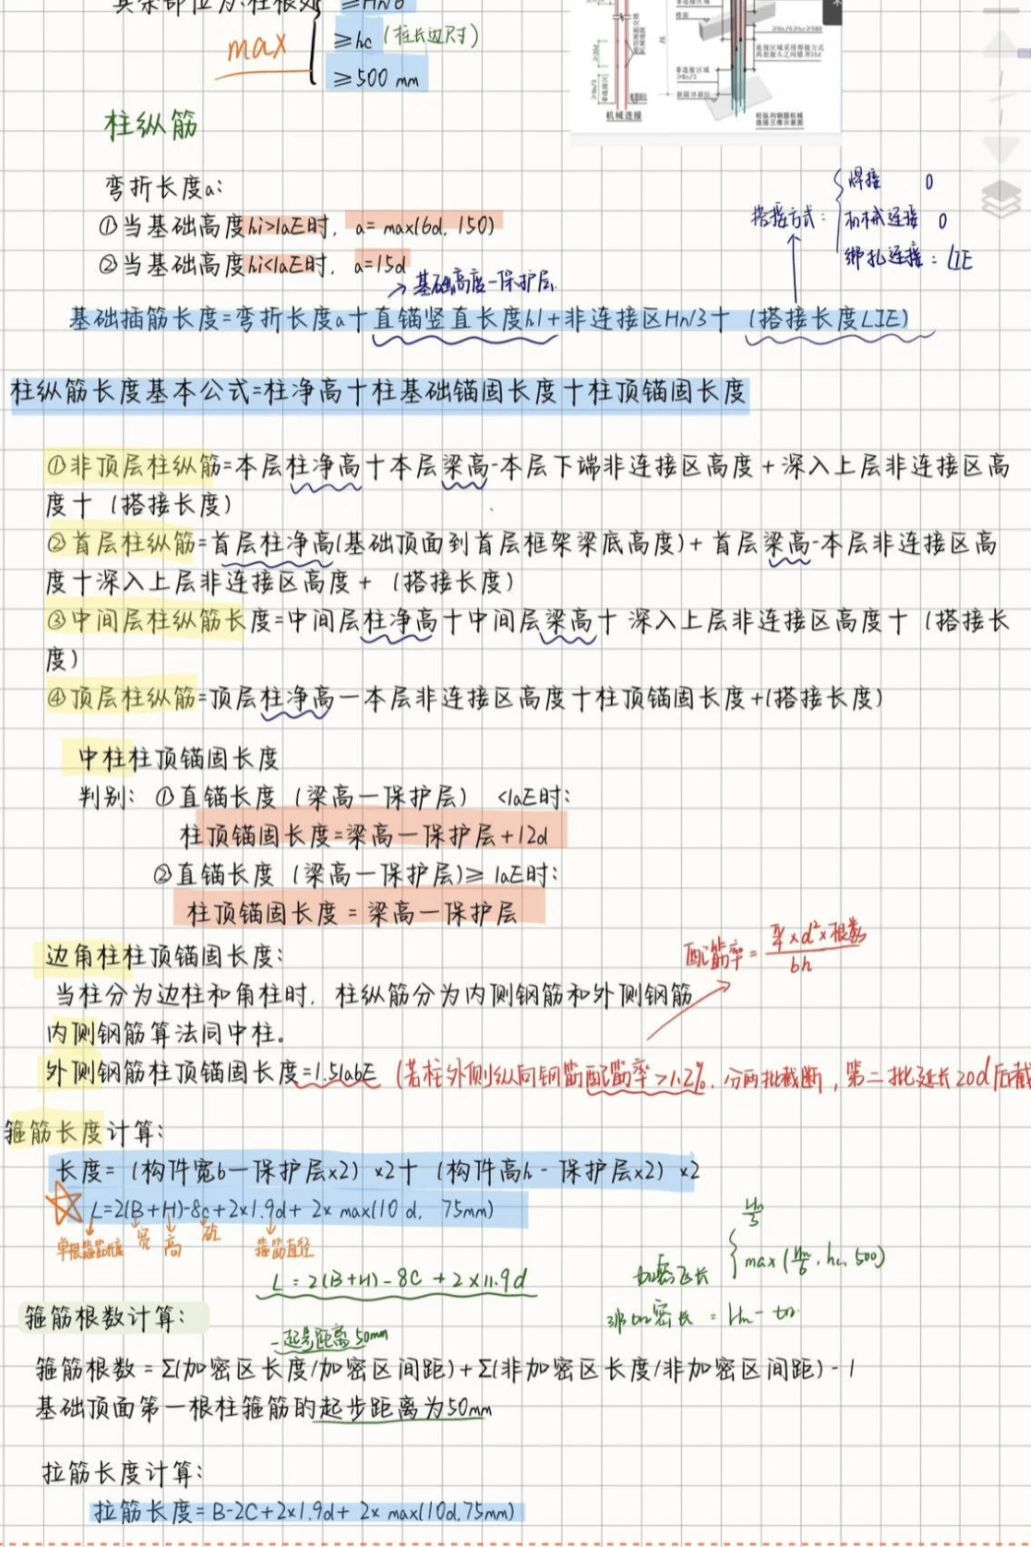 ≥Hn/6
max
≥hc (柱长边尺寸)
≥500 mm
机械连接
柱纵筋
弯折长度a:
①当基础高度hi>laE时, a= max(6d, 150)
②当基础高度hi<laE时, a=15d
搭接方式:
焊接 0
机械连接 0
绑扎连接: LlE
基础高度-保护层
基础插筋长度=弯折长度a+直锚竖直长度h1+非连接区Hn/3+ (搭接长度LIE)
柱纵筋长度基本公式=柱净高+柱基础锚固长度+柱顶锚固长度
①非顶层柱纵筋=本层柱净高+本层梁高-本层下端非连接区高度+深入上层非连接区高
度+ (搭接长度)
②首层柱纵筋=首层柱净高(基础顶面到首层框架梁底高度)+首层梁高-本层非连接区高
度+深入上层非连接区高度+ (搭接长度)
③中间层柱纵筋长度=中间层柱净高+中间层梁高+深入上层非连接区高度+ (搭接长
度)
④顶层柱纵筋=顶层柱净高-本层非连接区高度+柱顶锚固长度+(搭接长度)
中柱柱顶锚固长度
判别: ①直锚长度 (梁高-保护层) <laE时:
柱顶锚固长度=梁高-保护层+12d
②直锚长度 (梁高-保护层)≥ laE时:
柱顶锚固长度=梁高-保护层
边角柱柱顶锚固长度:
配筋率= π/4×d²×根数/bh
当柱分为边柱和角柱时, 柱纵筋分为内侧钢筋和外侧钢筋
内侧钢筋算法同中柱。
外侧钢筋柱顶锚固长度=1.5labE (若柱外侧纵向钢筋配筋率>1.2%, 分两批截断, 第二批延长20d后截
箍筋长度计算:
长度= (构件宽b-保护层×2) ×2+ (构件高h-保护层×2) ×2
L=2(B+H)-8c+2×1.9d+ 2× max(10 d, 75mm)
单根箍筋长度 宽 高 砼 箍筋直径
L=2(B+H)-8C+2×11.9d
加密区长
Hn/3
max(Hn/6, hc, 500)
非加密长=Hn-加
箍筋根数计算:
-起步距离50mm
箍筋根数=Σ(加密区长度/加密区间距)+Σ(非加密区长度/非加密区间距)-1
基础顶面第一根柱箍筋的起步距离为50mm
拉筋长度计算:
拉筋长度=B-2C+2×1.9d+ 2× max(10d,75mm)